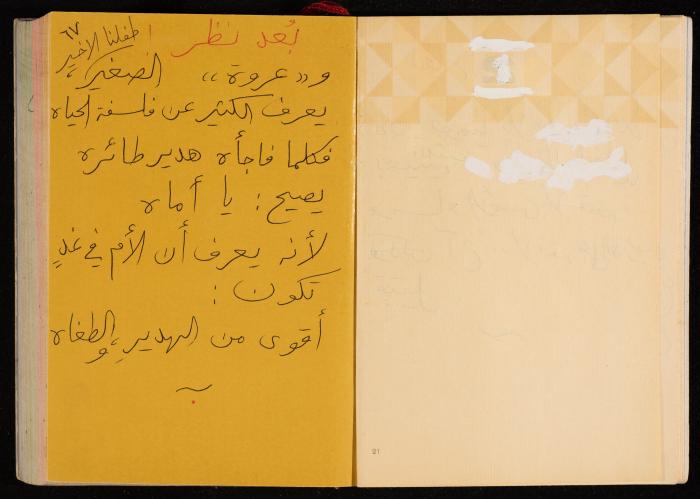 ٦٧
طفلنا الأخير
بُعد نظر
و«عروة» الصغير،
يعرف الكثير عن فلسفة الحياه
فكلما فاجأه هدير طائره
يصيح: يا أماه
لأنه يعرف أن الأم في غدٍ
تكون:
أقوى من الهديرِ، والطغاه
21